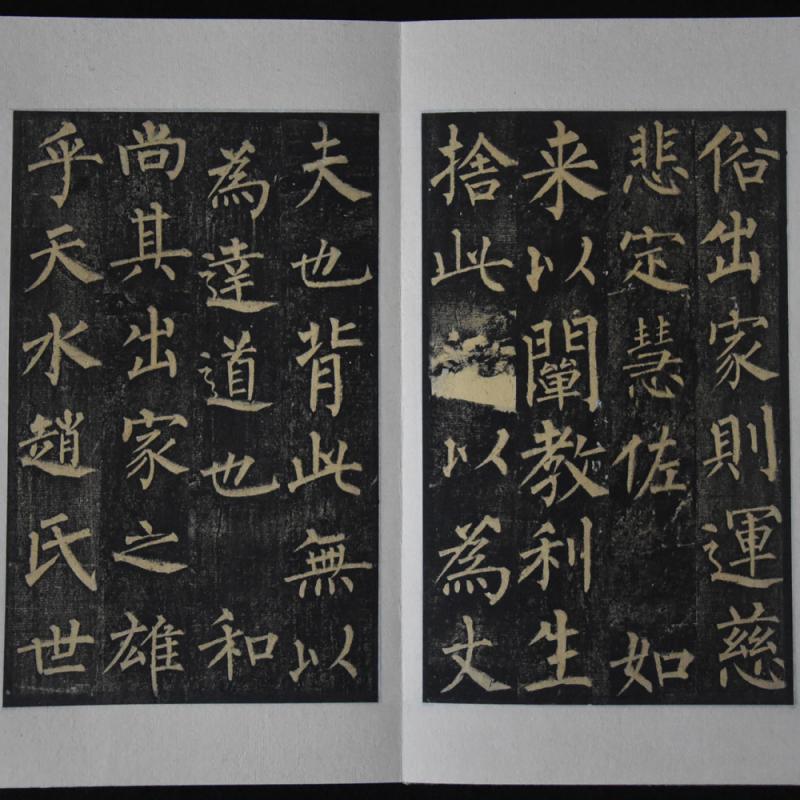 俗出家則運慈
悲定慧佐 如
来以闡教利生
捨此 以為丈
夫也背此無以
為達道也 和
尚其出家之雄
乎天水趙氏世